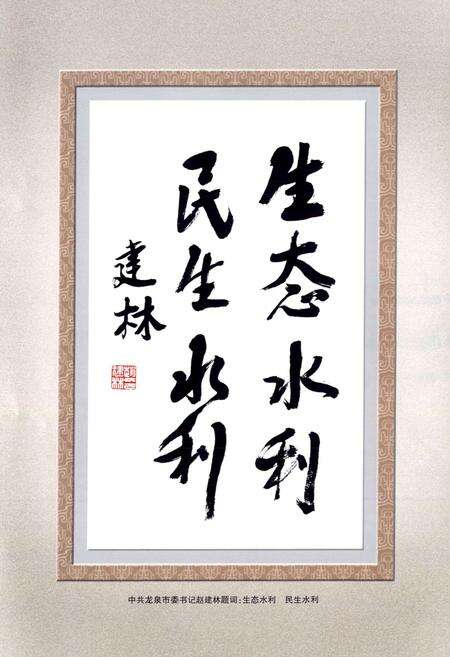 生态水利
民生水利
建林
中共龙泉市委书记赵建林题词：生态水利　民生水利